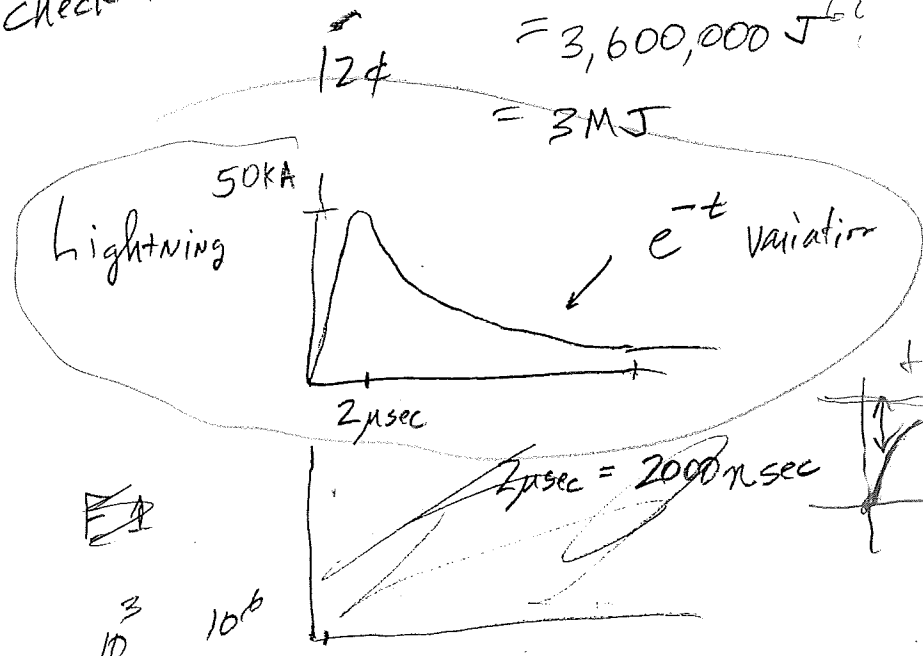 check
12¢
= 3,600,000 J
= 3MJ
50KA
Lightning
e^-t variation
2μsec
2μsec = 2000nsec
E1
10^3 10^6